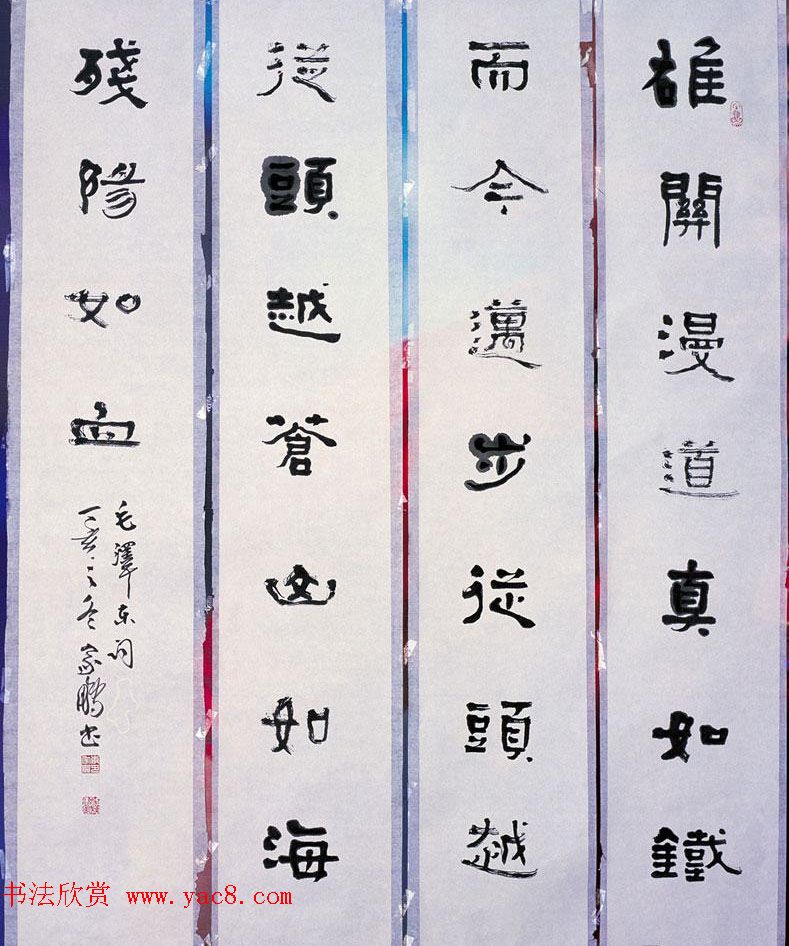 雄關漫道真如鐵
而今邁步從頭越
從頭越蒼山如海
殘陽如血
毛澤東詞
丁亥之冬家鵬書
书法欣赏 www.yac8.com